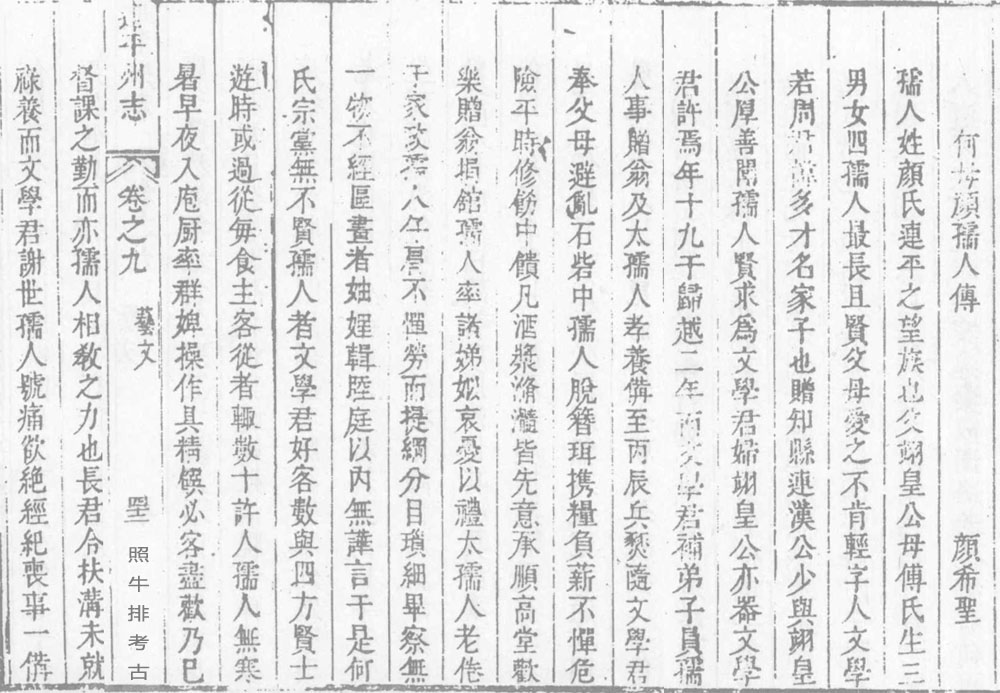 何母顏孺人傳 顏希聖
孺人姓顏氏連平之望族也父翊皇公母傅氏生三
男女四孺人最長且賢父母愛之不肯輕字人文學
若周君諱多才名家子也贈知縣連漢公少與翊皇
公厚善聞孺人賢求為文學君婦翊皇公亦器文學
君許焉年十九于歸越二年而文學君補弟子員孺
人事贈翁及太孺人孝養備至丙辰兵燹隨文學君
奉父母避亂石砦中孺人脫簪珥携糧負薪不憚危
險平時修飭中饋凡酒漿滫瀡皆先意承順高堂歡
樂贈翁捐館孺人率諸娣姒哀憂以禮太孺人老倦
于家政孺人年亹不憚勞而提綱分目瑣細畢察無
一物不經區畫者妯娌輯睦庭以內無譁言于是何
氏宗黨無不賢孺人者文學君好客數與四方賢士
遊時或過從每食主客從者輒數十許人孺人無寒
暑早夜入庖厨率群婢操作具精饌必客盡歡乃已
連平州志 卷之九 藝文
照牛排考古
督課之勤而亦孺人相教之力也長君令扶溝未就
祿養而文學君謝世孺人號痛欲絕經紀喪事一偹